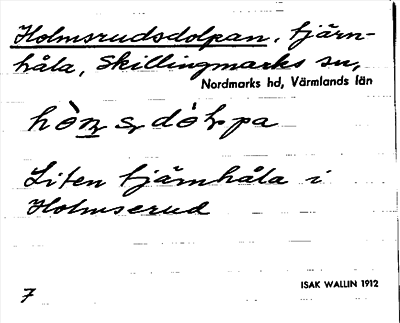 Holmsrudsdolpan, tjärn-
håla, Skillingmarks sn,
Nordmarks hd, Värmlands län
Liten tjärnhåla i
Holmserud
7 ISAK WALLIN 1912